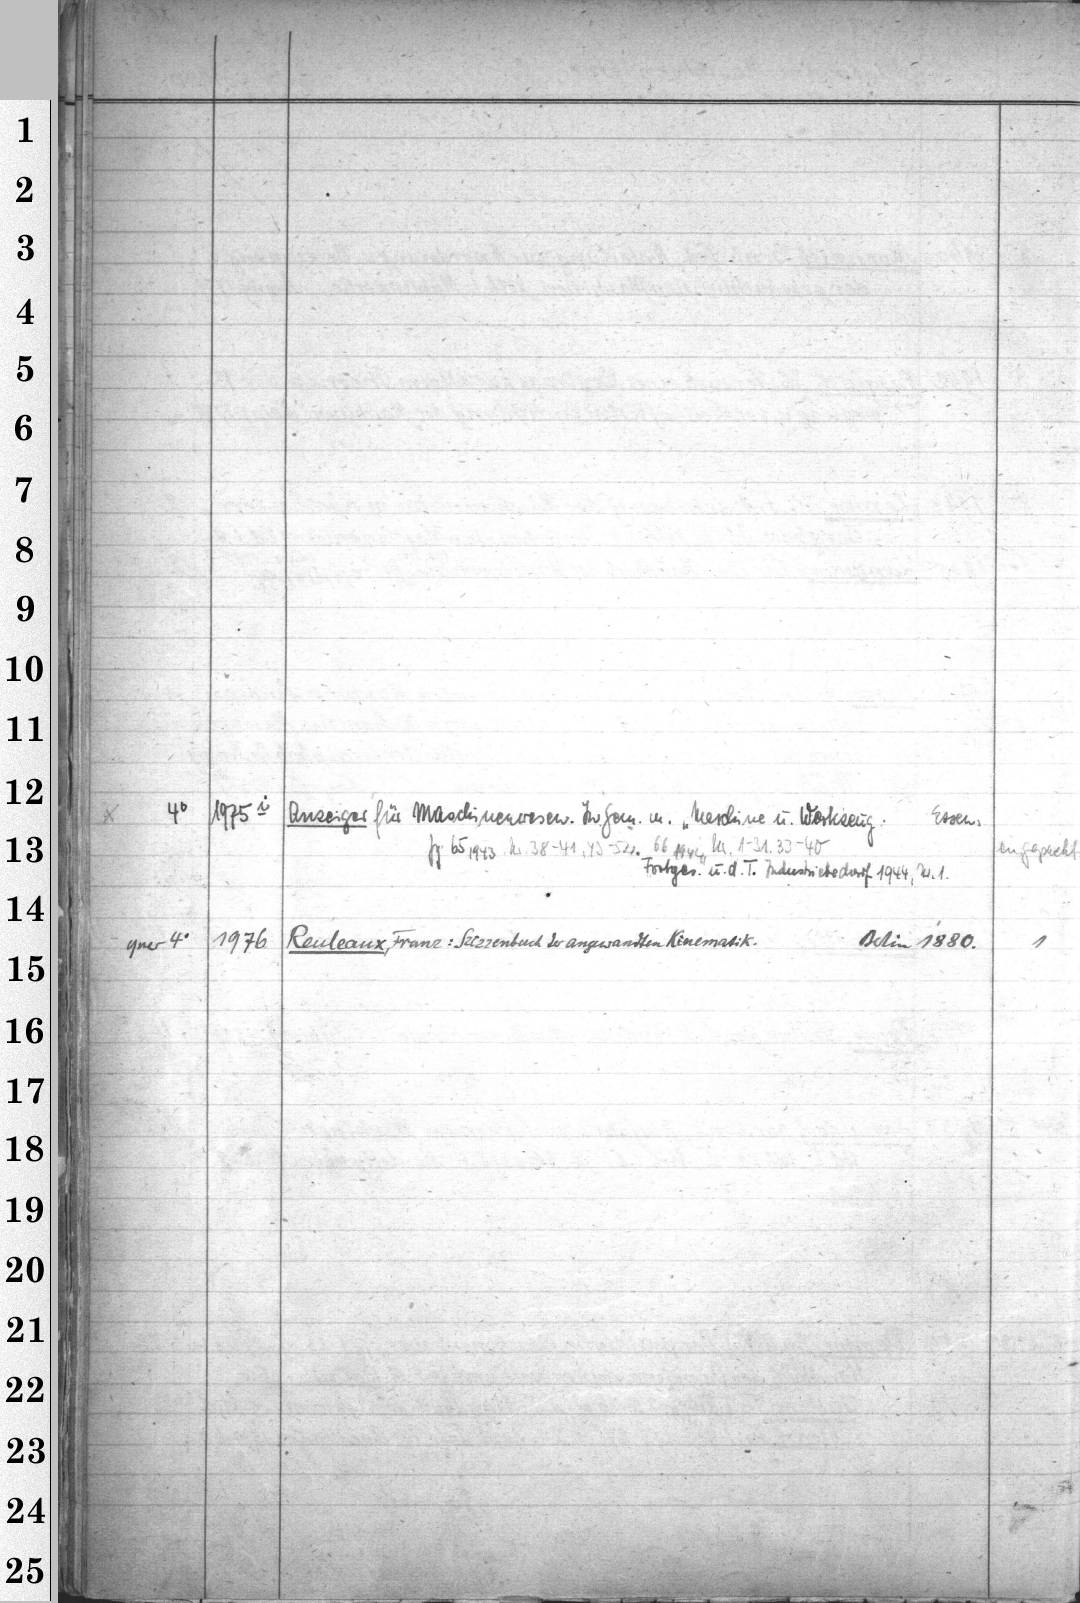 1
2
3
4
5
6
7
8
9
10
11
12
4° 1975 i Anzeiger für Maschinenwesen. In Gem. m. „Maschine u. Werkzeug. Essen.
13
Jg 65, 1943 Nr. 38-41, 43-52. 66 1944, Nr. 1-31. 33-40 eingepackt
Fortges. u. d. T. Industriebedarf 1944, Nr. 1.
14
quer 4° 1976 Reuleaux, Franz: Scizzenbuch der angewandten Kinematik. Berlin 1880. 1
15
16
17
18
19
20
21
22
23
24
25